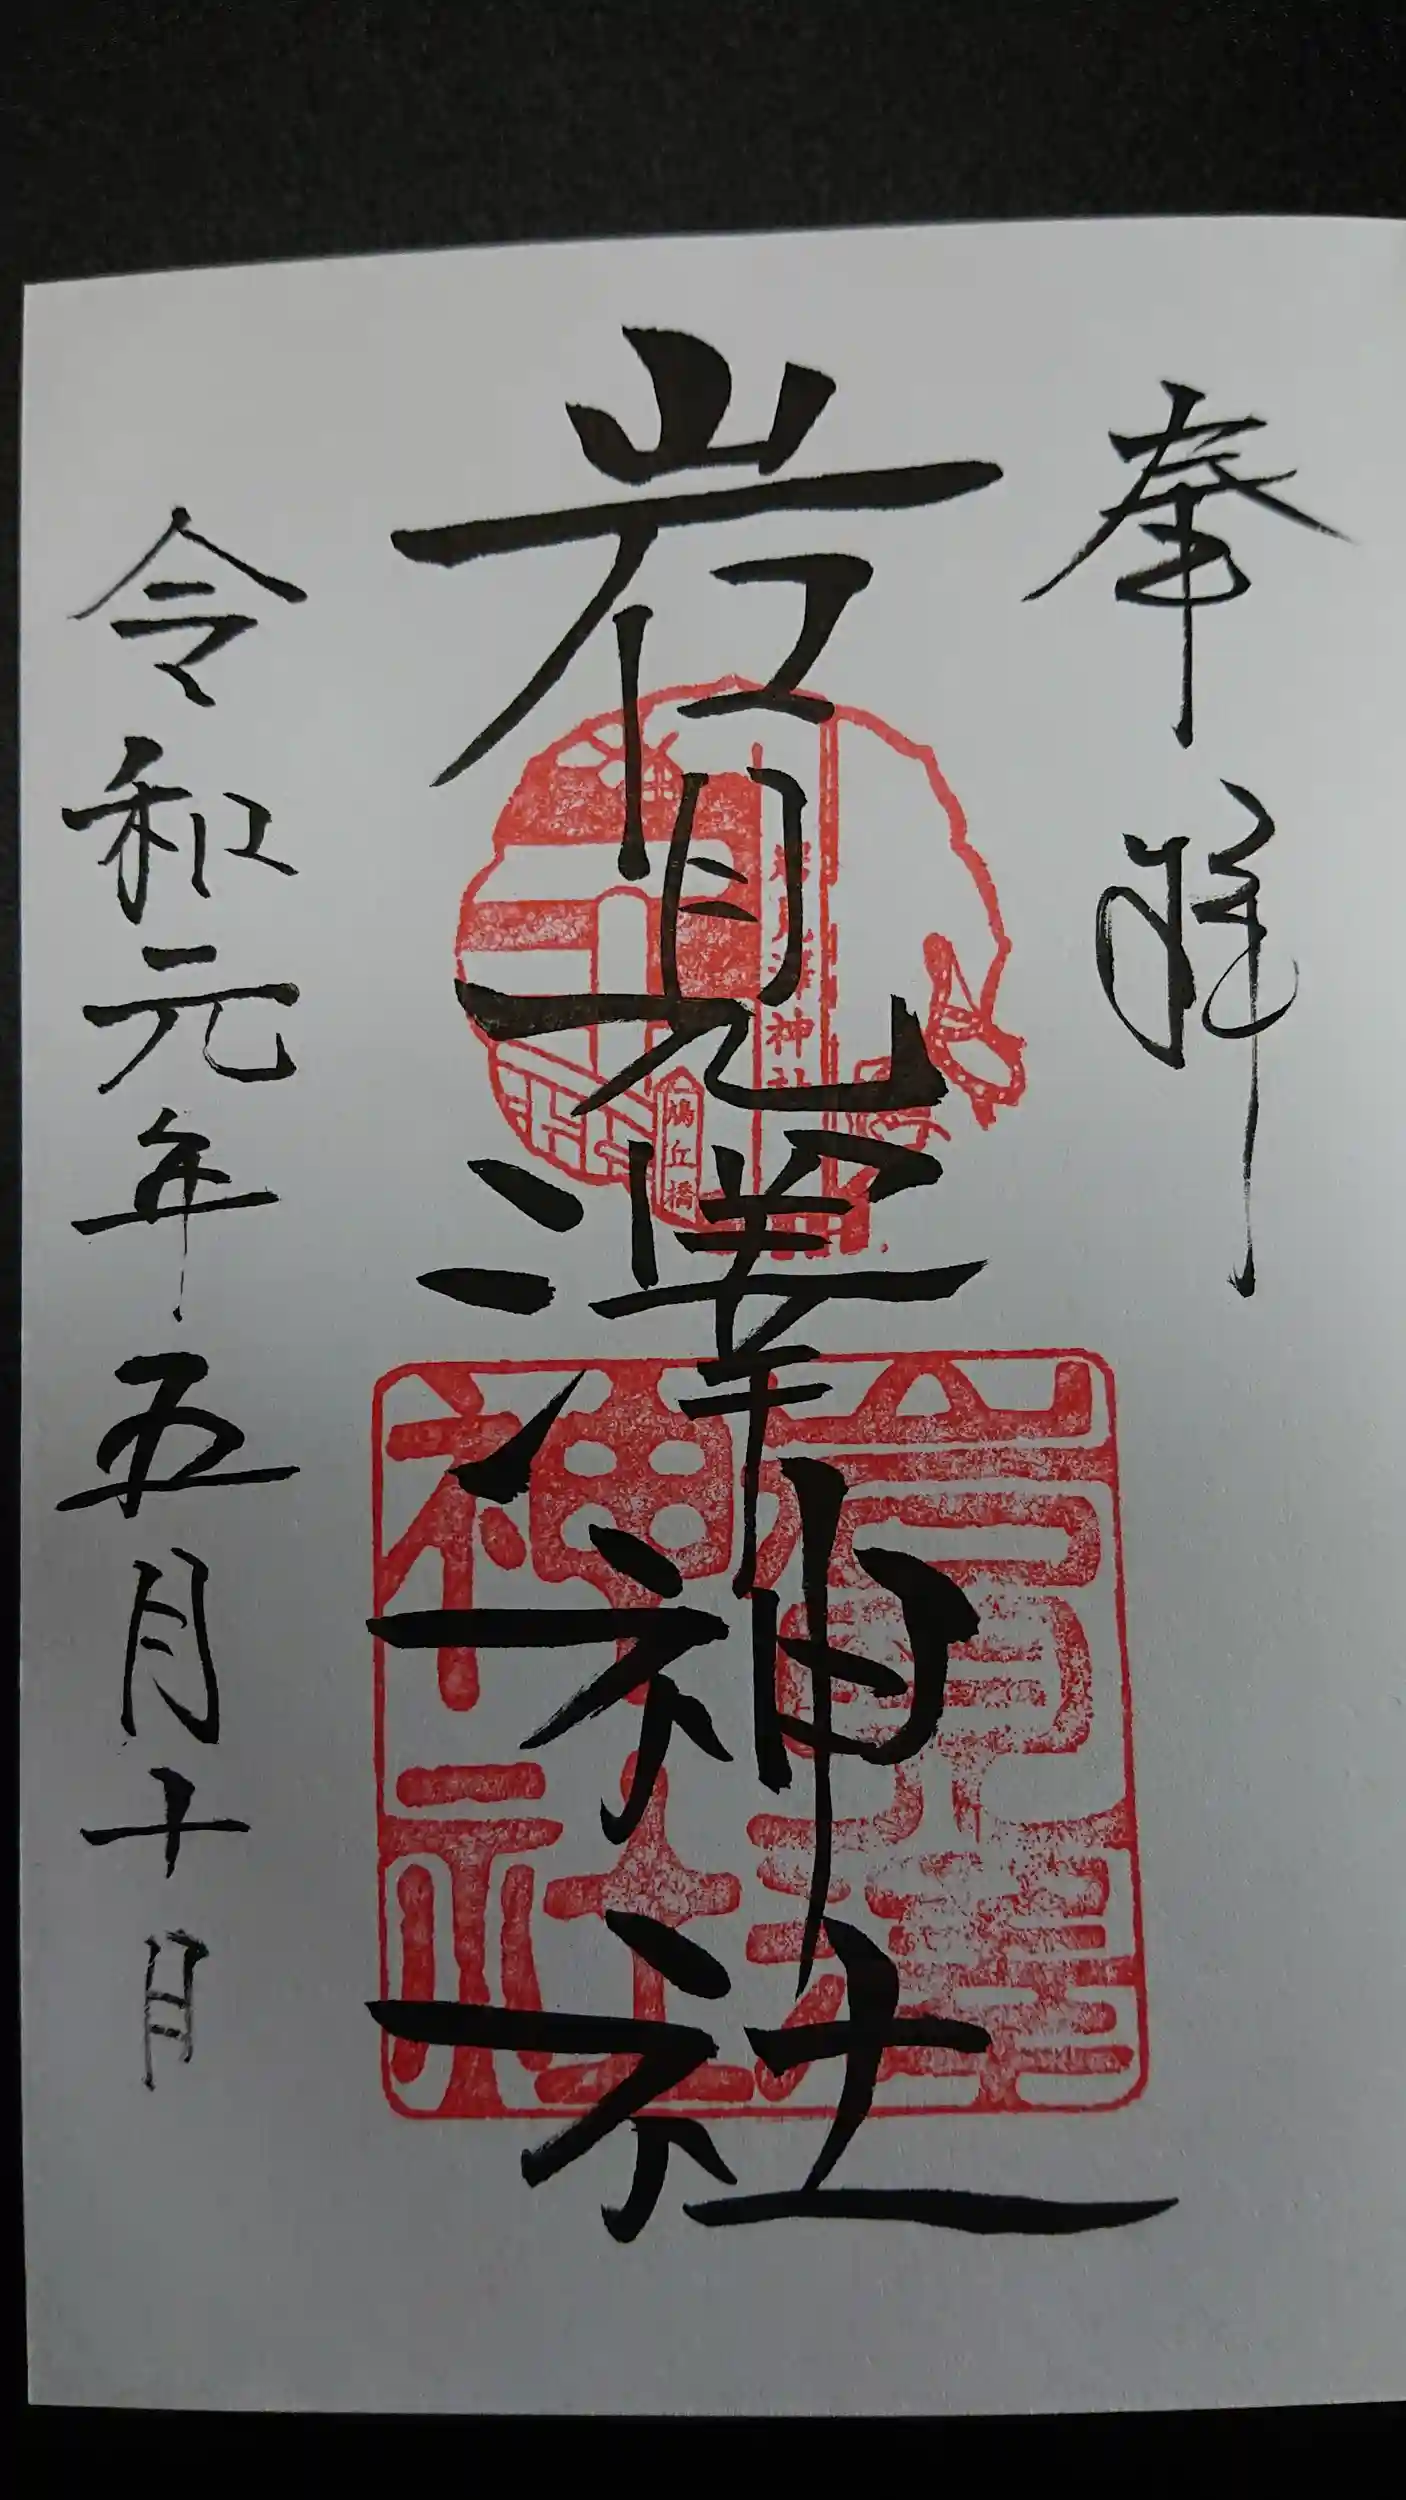 奉拝
岩見澤神社
岩見澤神社
鳩丘橋
岩見澤神社
令和元年五月十日